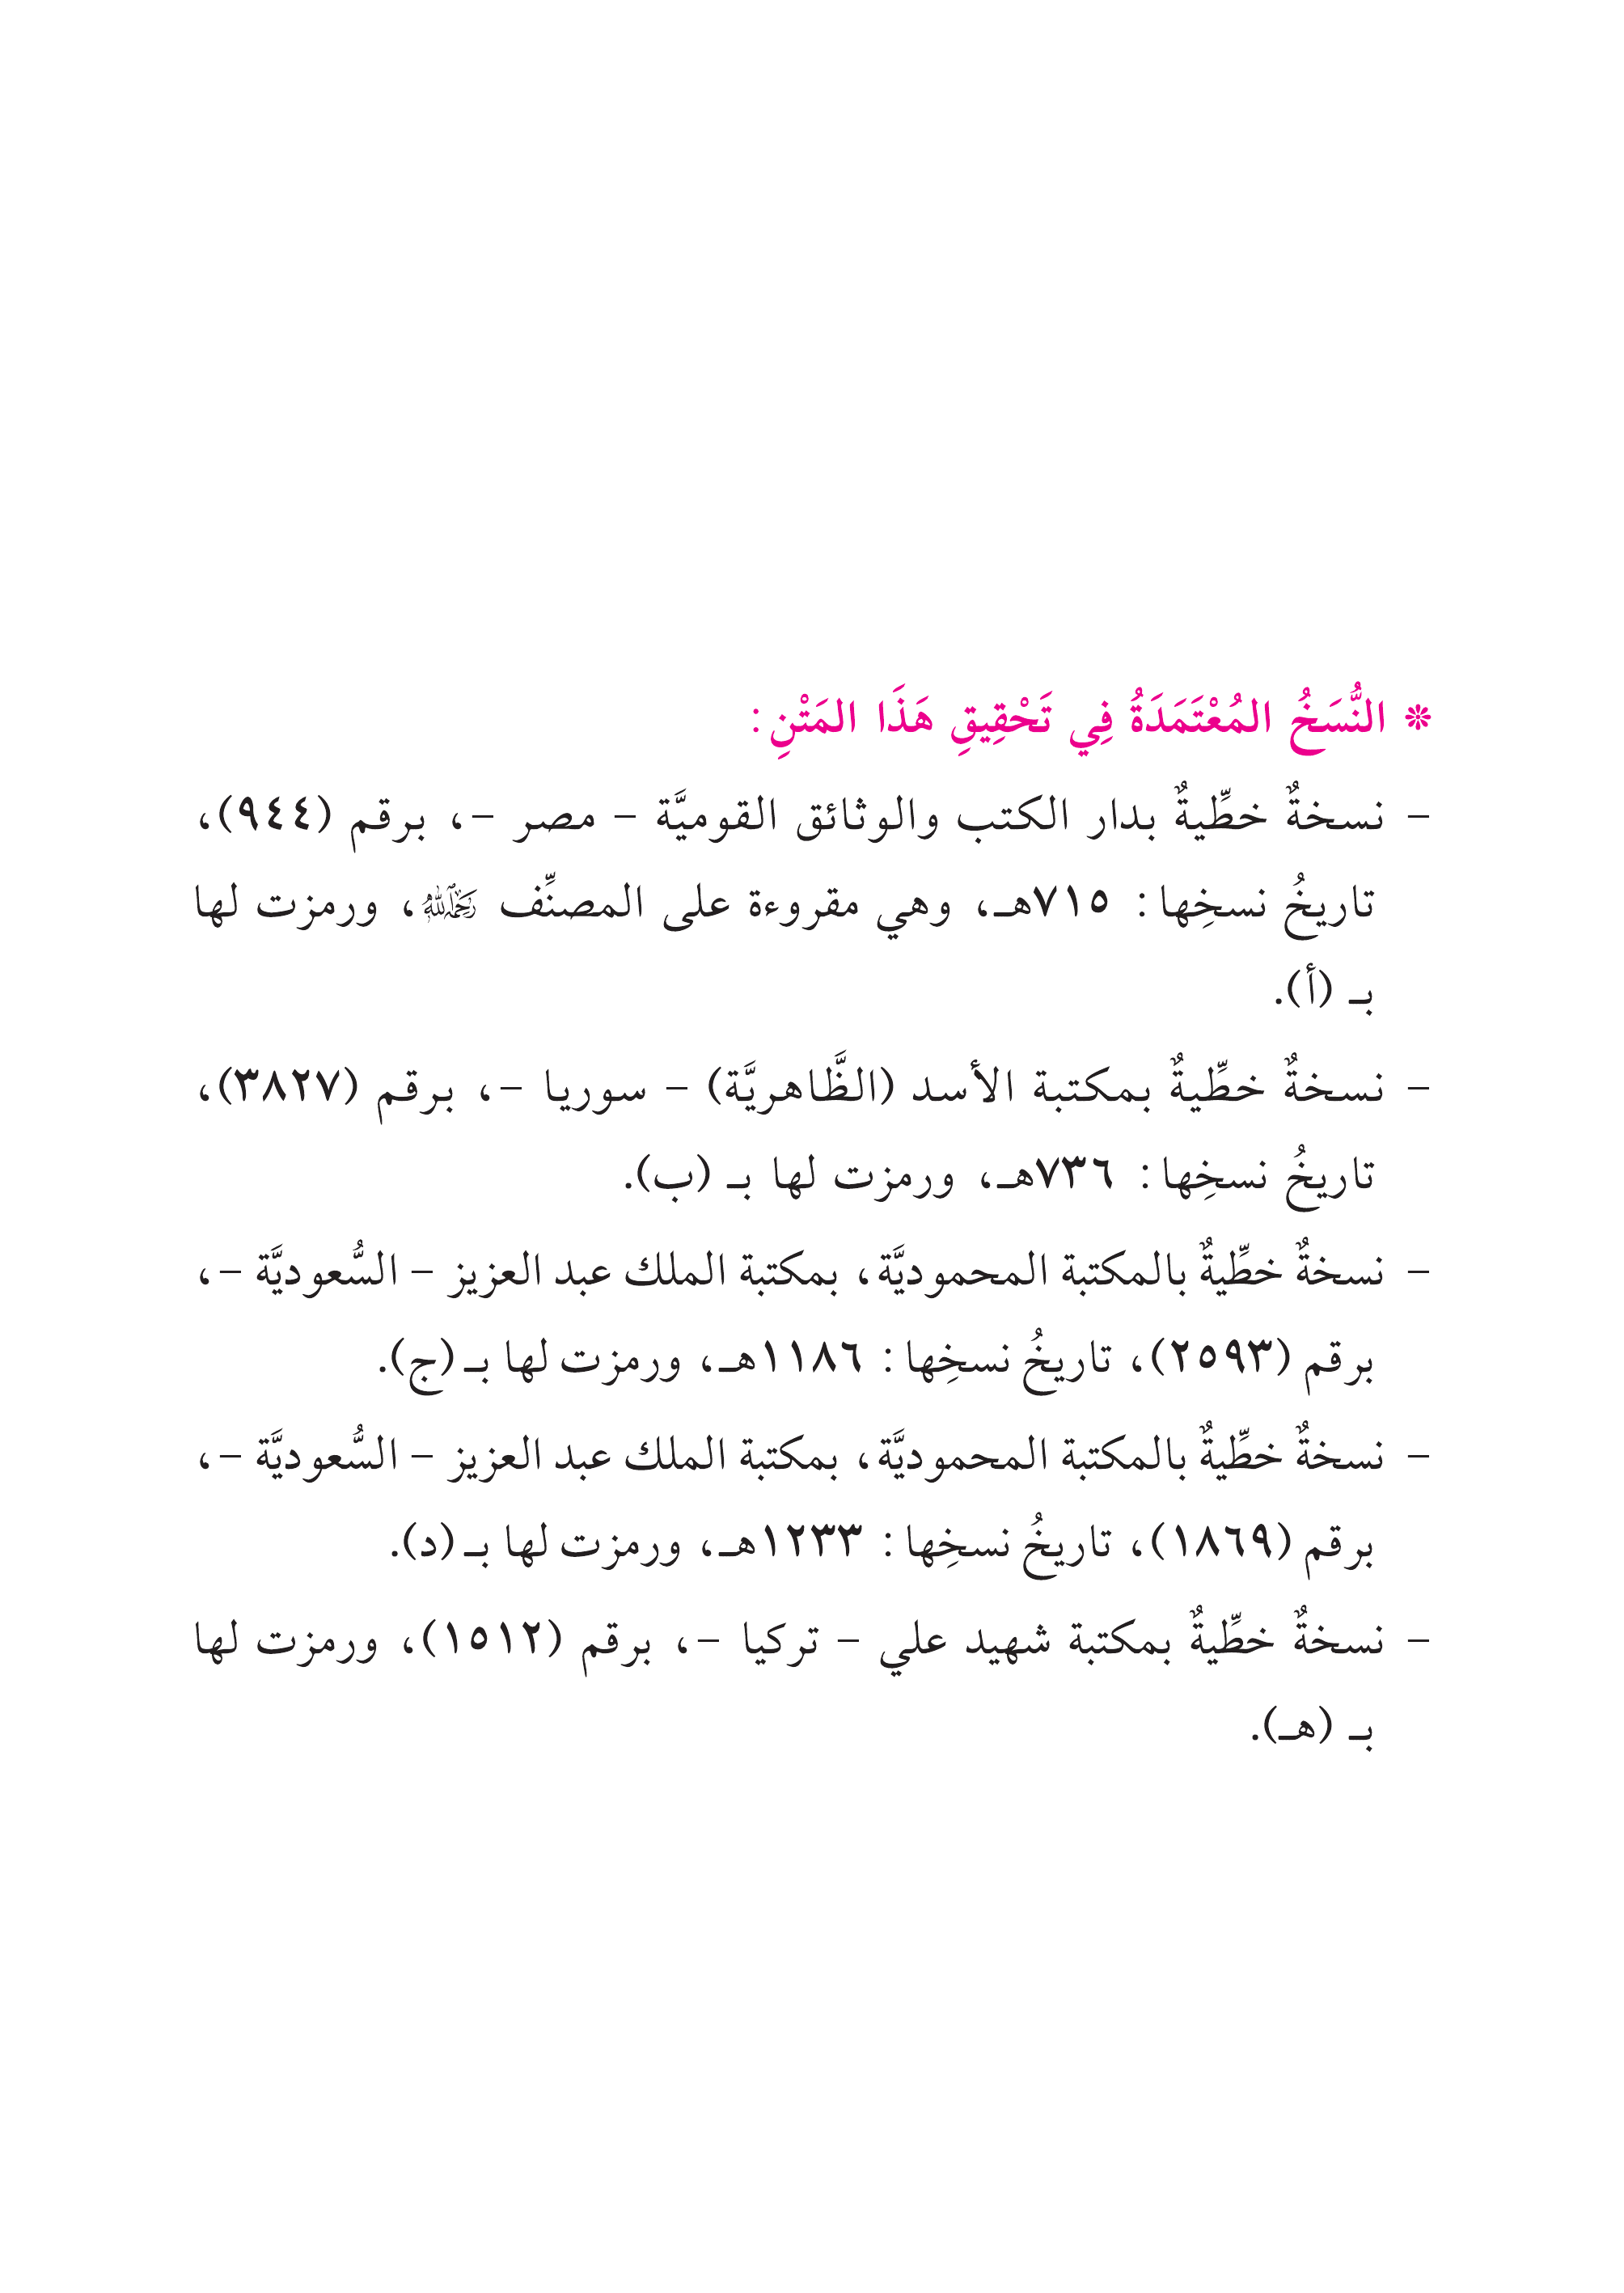 * النُّسَخُ المُعْتَمَدَةُ فِي تَحْقِيقِ هَذَا المَتْنِ:
- نسخةٌ خطِّيةٌ بدار الكتب والوثائق القوميَّة - مصر -، برقم (٩٤٤)،
تاريخُ نسخِها: ٧١٥هـ، وهي مقروءة على المصنِّف رَحِمَهُ اللَّهُ، ورمزت لها
بـ (أ).
- نسخةٌ خطِّيةٌ بمكتبة الأسد (الظَّاهريَّة) - سوريا -، برقم (٣٨٢٧)،
تاريخُ نسخِها: ٧٣٦هـ، ورمزت لها بـ (ب).
- نسخةٌ خطِّيةٌ بالمكتبة المحموديَّة، بمكتبة الملك عبد العزيز - السُّعوديَّة -،
برقم (٢٥٩٣)، تاريخُ نسخِها: ١١٨٦هـ، ورمزت لها بـ (ج).
- نسخةٌ خطِّيةٌ بالمكتبة المحموديَّة، بمكتبة الملك عبد العزيز - السُّعوديَّة -،
برقم (١٨٦٩)، تاريخُ نسخِها: ١٢٣٣هـ، ورمزت لها بـ (د).
- نسخةٌ خطِّيةٌ بمكتبة شهيد علي - تركيا -، برقم (١٥١٢)، ورمزت لها
بـ (هـ).